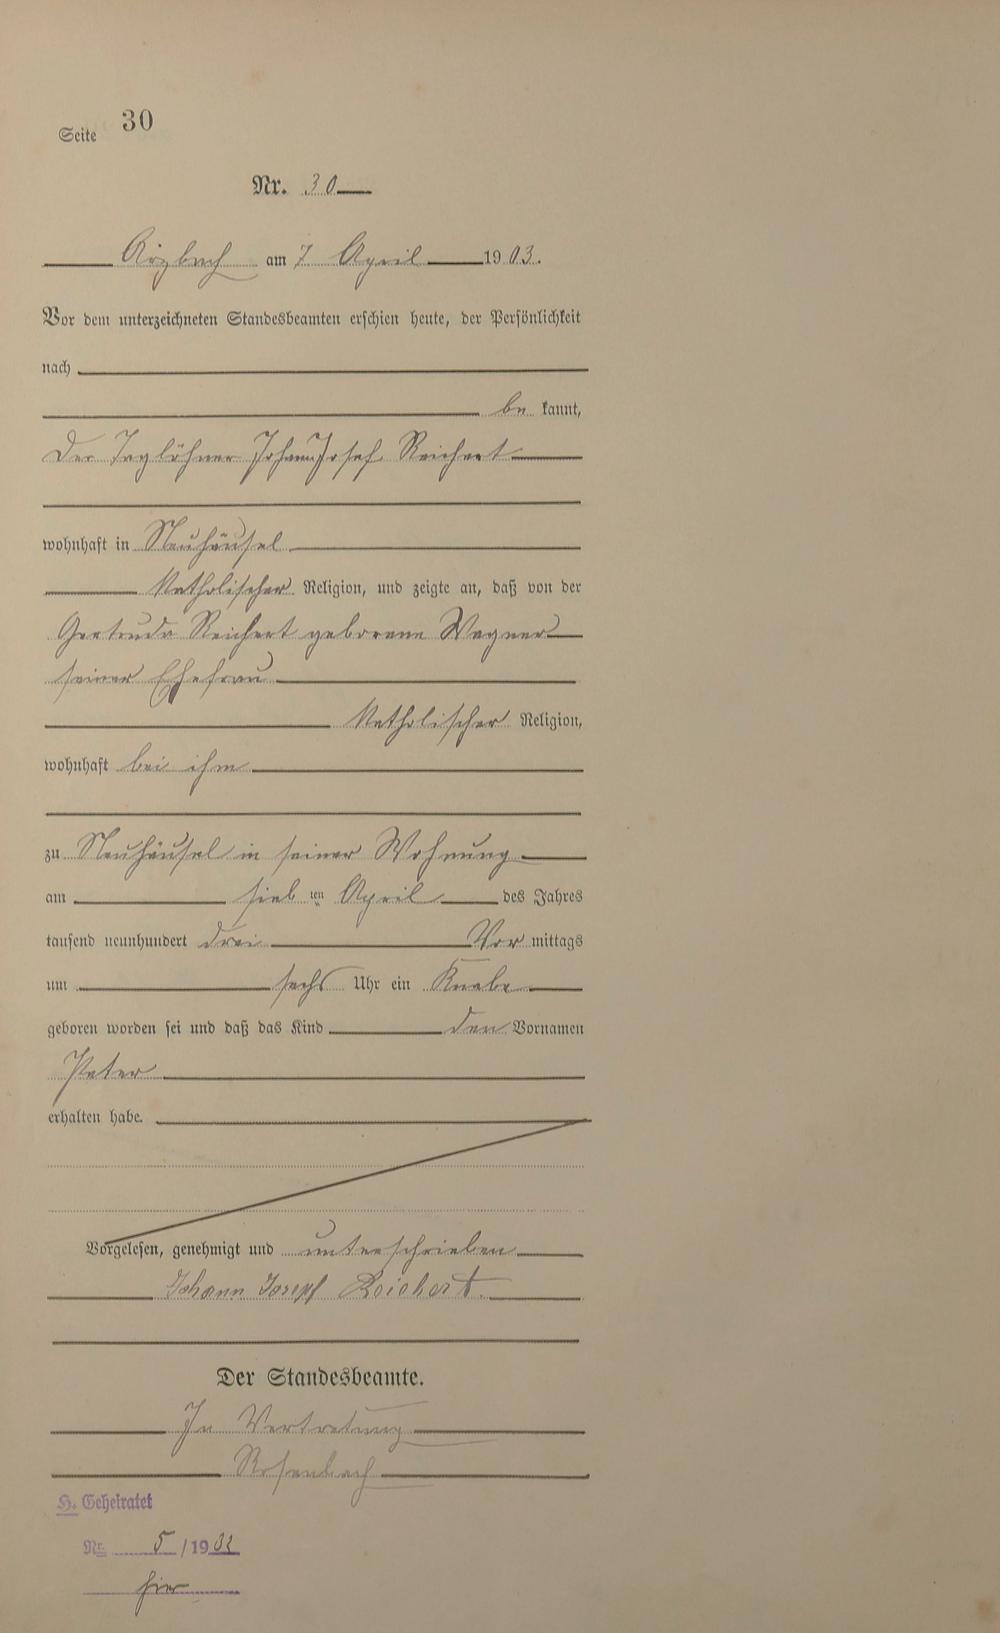 Seite 30
Nr. 30
Arzbach am 7 April 1903.
Vor dem unterzeichneten Standesbeamten erschien heute, der Persönlichkeit
nach
be kannt,
der Taglöhner Johann Josef Reichert
wohnhaft in Neuhäusel
katholischer Religion, und zeigte an, daß von der
Gertruda Reichert geborene Wagner
seiner Ehefrau
katholischer Religion,
wohnhaft bei ihm
zu Neuhäusel in seiner Wohnung
am sieb ten April des Jahres
tausend neunhundert drei Vor mittags
um sechs Uhr ein Knabe
geboren worden sei und daß das Kind den Vornamen
Peter
erhalten habe.
Vorgelesen, genehmigt und unterschrieben
Johann Joseph Reichert.
Der Standesbeamte.
In Vertretung
Rosenbach
H. Geheiratet
Nr. 5 /1932
hier